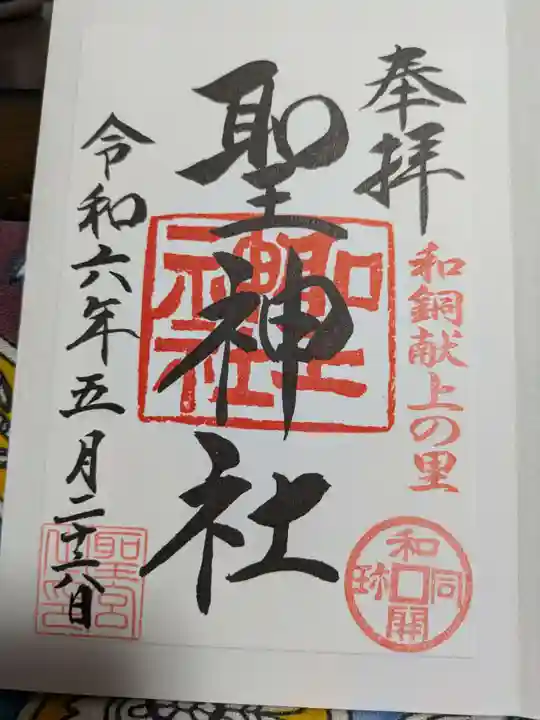 奉拝
和銅献上の里
聖神社
聖神社
和同開珎
令和六年五月二十八日